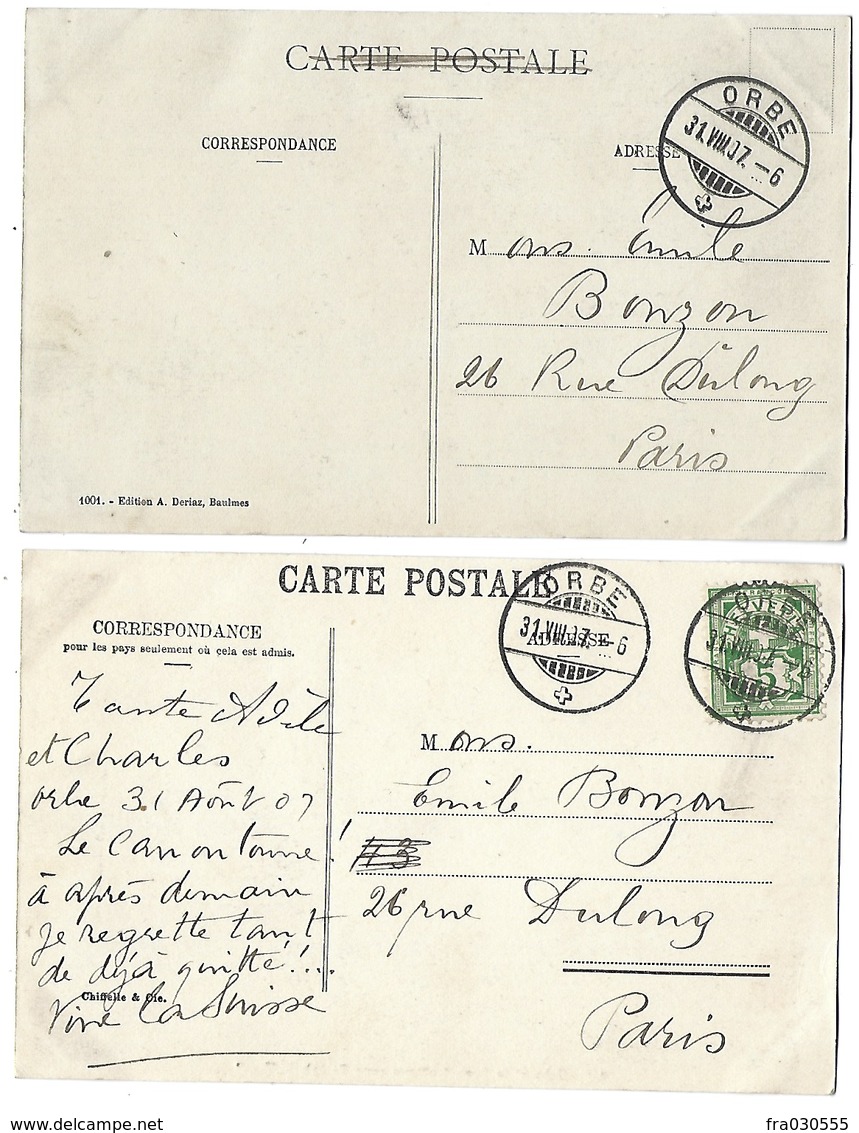 CARTE POSTALE
CORRESPONDANCE
ADRESSE
ORBE
31.VIII.07.–6
Mons. Emile
Bonzon
26 Rue Dulong
Paris
1001. - Edition A. Deriaz, Baulmes
CARTE POSTALE
CORRESPONDANCE
pour les pays seulement où cela est admis.
ADRESSE
ORBE
31.VIII.07.–6
ORBE
31.VIII.07.–6
5
Tante Adèle
et Charles
orbe 31 Août 07
Le Canon tonne!
à après demain
je regrette tant
de déjà quitté!!...
Chiffelle & Cie.
Vive la Suisse
Mons.
Emile Bonzon
13
26 rue Dulong
Paris
delcampe.net
fra030555